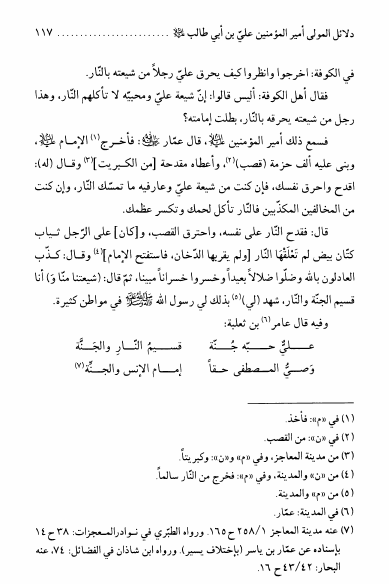 دلائل المولى أمير المؤمنين عليّ بن أبي طالب ﷺ ........................ ١١٧
في الكوفة: اخرجوا وانظروا كيف يحرق عليّ رجلاً من شيعته بالنّار.
فقال أهل الكوفة: أليس قالوا: إنّ شيعة عليّ ومحبيّه لا تأكلهم النّار، وهذا
رجل من شيعته يحرقه بالنّار، بطلت إمامته؟
فسمع ذلك أمير المؤمنين ﷺ، قال عمّار: فأخرج(١) الإمام ﷺ،
وبنى عليه ألف حزمة (قصب)(٢)، وأعطاه مقدحة [من الكبريت](٣) وقال (له):
اقدح واحرق نفسك، فإن كنت من شيعة عليّ وعارفيه ما تمسّك النّار، وإن كنت
من المخالفين المكذّبين فالنّار تأكل لحمك وتكسر عظمك.
قال: فقدح النّار على نفسه، واحترق القصب، و[كان] على الرّجل ثـياب
كتّان بيض لم تَعلَقْها النّار [ولم يقربها الدّخان، فاستفتح الإمام](٤) وقال: كـذّب
العادلون بالله وضلّوا ضلالاً بعيداً وخسروا خسراناً مبينا، ثمّ قال: (شيعتنا منّا وَ) أنا
قسيم الجنّة والنّار، شهد (لي)(٥) بذلك لي رسول الله ﷺ في مواطن كثيرة.
وفيه قال عامر(٦) بن ثعلبة:
عـلـيٌّ حـبّـه جُـنَّة قسـيمُ النّـارِ والجَـنَّة
وَصـيُّ المـصطفى حـقـاً إمـام الإنس والجـنِّة(٧)
(١) في «م»: فأخذ.
(٢) في «ن»: من القصب.
(٣) من مدينة المعاجز، وفي «م» و«ن»: وكبريتاً.
(٤) من «ن» والمدينة، وفي «م»: فخرج من النّار سالماً.
(٥) من «م» والمدينة.
(٦) في المدينة: عمّار.
(٧) عنه مدينة المعاجز ١/٢٥٨ ح ١٦٥. ورواه الطّبري في نـوادر المـعجزات: ٣٨ ح ١٤
بإسناده عن عمّار بن ياسر (بإختلاف يسير). ورواه ابن شاذان في الفضائل: ٧٤، عنه
البحار: ٤٣/٤٢ ح ١٦.